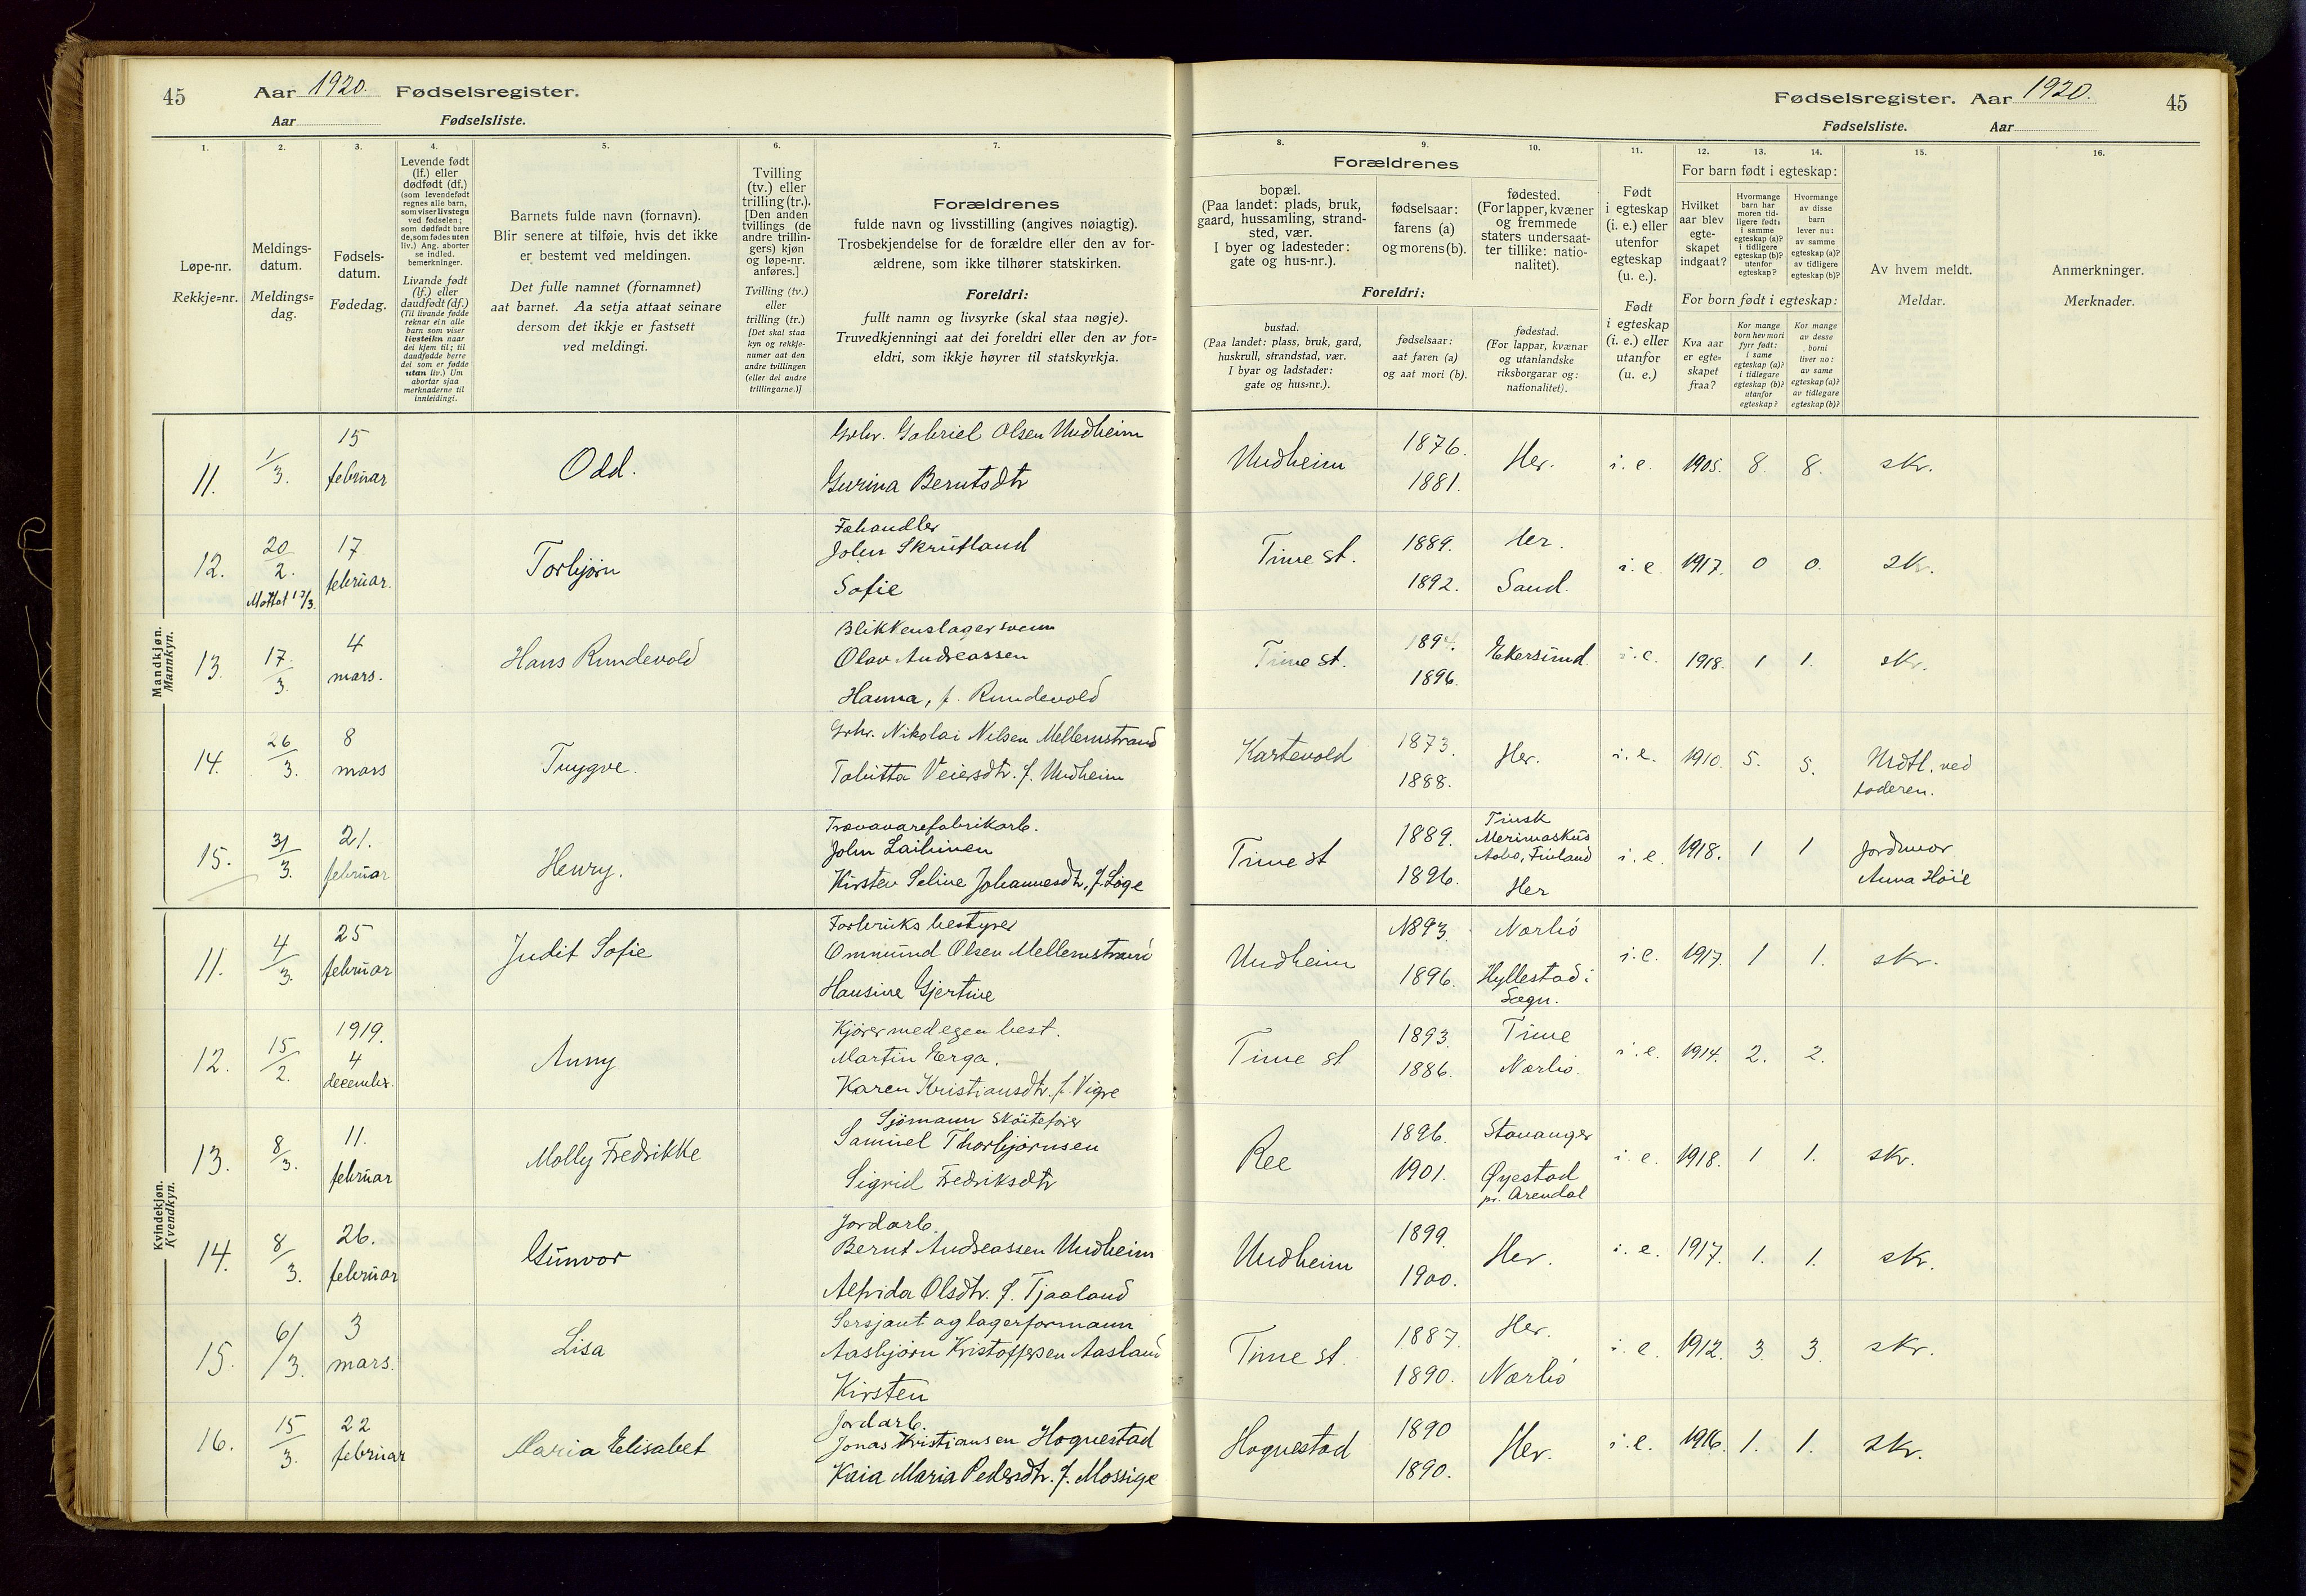 45
Aar 1920. Fødselsregister.
Aar Fødselsliste.
1.
2.
3.
4.
5.
6.
7.
Løpe-nr.
Rekkje=nr.
Meldings-
datum.
Meldings=
dag.
Fødsels-
datum.
Fødedag.
Levende født
(lf.) eller
dødfødt (df.)
(som levendefødt
regnes alle barn,
som viser livstegn
ved fødselen;
som dødfødt bare
de, som fødes uten
liv.) Ang. aborter
se indled.
bemerkninger.
Livande født
(lf.) eller
daudfødt (df.)
(Til livande fødde
reknar ein alle
barn som viser
livsteikn naar
dei kjem til; til
daudfødde berre
dei som er fødde
utan liv.) Um
abortar sjaa
merknaderne til
innleidingi.
Barnets fulde navn (fornavn).
Blir senere at tilføie, hvis det ikke
er bestemt ved meldingen.
Det fulle namnet (fornamnet)
aat barnet. Aa setja attaat seinare
dersom det ikkje er fastsett
ved meldingi.
Tvilling
(tv.) eller
trilling (tr.).
[Den anden
tvillings (de
andre trillin-
gers) kjøn
og løpe-nr.
anføres.]
Tvilling (tv.)
eller
trilling (tr.)
[Det skal staa
kyn og rekkje-
numer aat den
andre tvillingen
(eller dei andre
trillingarne.)]
Forældrenes
fulde navn og livsstilling (angives nøiagtig).
Trosbekjendelse for de forældre eller den av for-
ældrene, som ikke tilhører statskirken.
Foreldri:
fullt namn og livsyrke (skal staa nøgje).
Truvedkjenningi aat dei foreldri eller den av for=
eldri, som ikkje høyrer til statskyrkja.
Mandkjøn.
Mannkyn.
11. 1/3. 15 februar Odd.
Grbr. Gabriel Olsen Undheim
Gurina Berntsdtr
12. 20/2. Mottat 17/3. 17 februar. Torbjørn
Fehandler
John Skrutland
Sofie
13. 17/3. 4 mars. Hans Rundevold
Blikkenslagersvenn
Olav Andreassen
Hanna, f. Rundevold
14. 26/3. 8 mars Trygve.
Grbr. Nikolai Nilsen Mellemstrand
Tabitta Veiersdtr. f. Undheim
15. 31/3. 21. februar Henry.
Trævarefabrikarb.
John Laihinen
Kirsten Seline Johannesdtr, f. Løge
Kvindekjøn.
Kvendkyn.
11. 4/3. 25 februar Judit Sofie
Forbruksbestyrer
Ommund Olsen Mellemstrand
Hansine Gjertine
12. 15/2. 1919. 4 december. Anny
Kjører med egen hest.
Martin Erga.
Karen Kristiansdtr. f. Vigre
13. 8/3. 11. februar Molly Fredrikke
Sjömann skøitefører
Samuel Thorbjørnsen
Sigrid Fredriksdtr
14. 8/3. 26. februar Gunvor
Jordarb.
Bernt Andreassen Undheim
Alfrida Olsdtr. f. Tjaaland
15. 6/3. 3 mars. Lisa
Sersjant og lagerformann
Aasbjørn Kristoffersen Aasland
Kirsten
16. 15/3. 22 februar Maria Elisabet
Jordarb.
Jonas Kristiansen Hognestad
Kaia Maria Pedersdtr. f. Mossige
Fødselsregister. Aar 1920. 45
Fødselsliste. Aar
8.
9.
10.
11.
12.
13.
14.
15.
16.
Forældrenes
bopæl.
(Paa landet: plads, bruk,
gaard, hussamling, strand-
sted, vær.
I byer og ladesteder:
gate og hus-nr.).
fødselsaar:
farens (a)
og morens (b).
fødested.
(For lapper, kvæner
og fremmede
staters undersaat-
ter tillike: natio-
nalitet).
Foreldri:
bustad.
(Paa landet: plass, bruk, gard,
huskrull, strandstad, vær.
I byar og ladstader:
gate og hus=nr.).
fødselsaar:
aat faren (a)
og aat mori (b).
fødestad.
(For lappar, kvænar
og utanlandske
riksborgarar og:
nationalitet).
Født
i egteskap
(i. e.) eller
utenfor
egteskap
(u. e.).
Født
i egteskap
(i. e.) eller
utanfor
(u. e.)
For barn født i egteskap:
Hvilket
aar blev
egte-
skapet
indgaat?
Hvormange
barn har
moren tid-
ligere født:
i samme
egteskap (a)?
i tidligere
egteskap (b)?
utenfor
egteskap?
Hvormange
av disse
barn
lever nu:
av samme
egteskap (a)?
av tidligere
egteskap (b)?
For born født i egteskap:
Kva aar
er egte=
skapet
fraa?
Kor mange
born hev mori
fyrr født:
i same
egteskap (a)?
i tidlegare
egteskap (b)?
utanfor
egteskap?
Kor mange
av desse
borni
liver no:
av same
egteskap (a)?
av tidlegare
egteskap (b)?
Av hvem meldt.
Meldar.
Anmerkninger.
Merknader.
Undheim 1876. 1881. Her. i. e. 1905. 8. 8. skr.
Time st. 1889. 1892. Her. Sand. i. e. 1917. 0 0. skr.
Time st. 1894. 1896. Ekersund. i. e. 1918. 1 1. skr.
Kartevold 1873. 1888. Her. i. e. 1910. 5. 5. Mdtl. ved
faderen.
Time st 1889. 1896. Finsk
Merimaskus
Aabo, Finland
Her i. e. 1918. 1 1 Jordmor
Anna Høie
Undheim 1893. 1896. Nærbö
Hyllestad i
Sogn. i. e. 1917. 1 1. skr.
Time st 1893. 1886. Time
Nærbö. i. e. 1914. 2. 2.
Ree 1896. 1901. Stavanger
Øyestad
pr. Arendal i. e. 1918. 1 1. skr.
Undheim 1899. 1900. Her. i. e. 1917. 1. 1. skr.
Time st. 1887. 1890. Her.
Nærbö i. e. 1912. 3. 3. skr.
Hognestad 1890 1890. Her. i. e. 1916. 1. 1. skr.